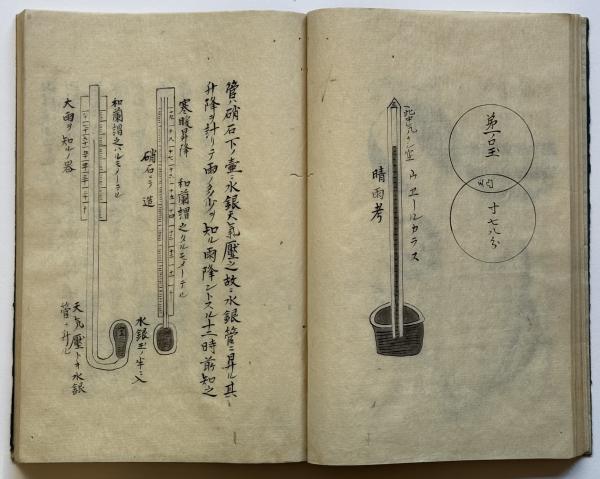 第一台玉
明
寸七八分
山エールカラス
晴雨考
管ハ硝石下ノ壷ニ水銀天氣壓之故ニ水銀管ニ昇ル其
升降ヲ計リテ雨ノ多少ヲ知ル雨降ントスル十二時前知之
寒暖昇降
和蘭謂之タルモメーテル
硝石ニテ造
水銀玉ノ半ニ入
和蘭謂之バルモメーテル
大雨ヲ知ルノ器
天気壓トキ水銀
管ニ升ル